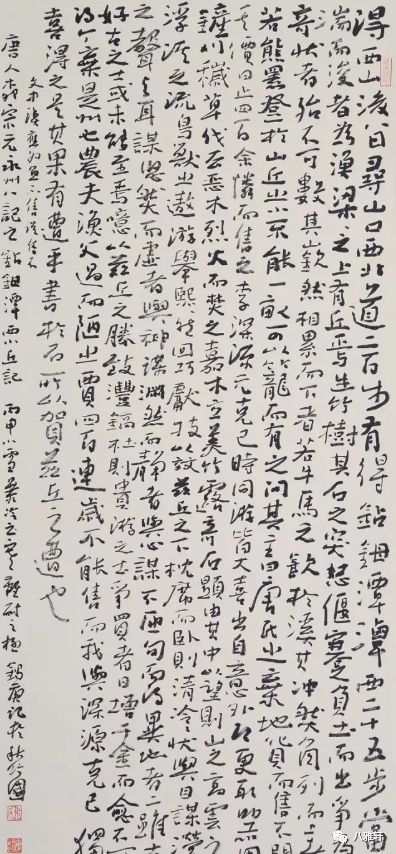 得西山後八日尋山口西北道二百步有得鈷鉧潭潭西二十五步當
湍而浚者為漁梁梁之上有丘焉生竹樹其石之突怒偃蹇負土而出爭為
奇狀者殆不可數其嶔然相累而下者若牛馬之飲於溪其沖然角列而上者
若熊羆登於山丘之小不能一畝可以籠而有之問其主曰唐氏之棄地貨而售不問
其價曰止四百余憐而售之李深源元克己時同遊皆大喜出自意外即更取器用
鏟刈穢草伐去惡木烈火而焚之嘉木立美竹露奇石顯由其中以望則山之高雲之
浮溪之流鳥獸之遨游舉熙熙然回巧獻技以效茲丘之下枕席而臥則清泠狀與目謀瀯瀯
之聲與耳謀悠然而虛者與神謀淵然而靜者與心謀不匝旬而得異地者二雖古
好古之士或未能至焉噫以茲丘之勝致灃鎬杜則貴游之士爭買者日增千金而愈不可
得今棄是州也農夫漁父過而陋之賈四百連歲不能售而我與深源克己獨
喜得之是其果有遭乎書於石所以賀茲丘之遭也
唐人柳宗元永州八記之鈷鉧潭西小丘記 丙申小雪
八雅轩